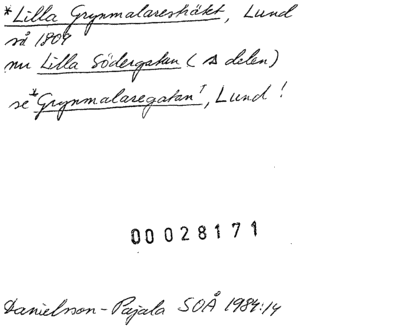 *Lilla Grynmalaresträkt, Lund
så 1809
nu Lilla Södergatan (s delen)
se *Grynmalaregatan↑, Lund!
00028171
Danielsson-Pajala SOÅ 1984:14